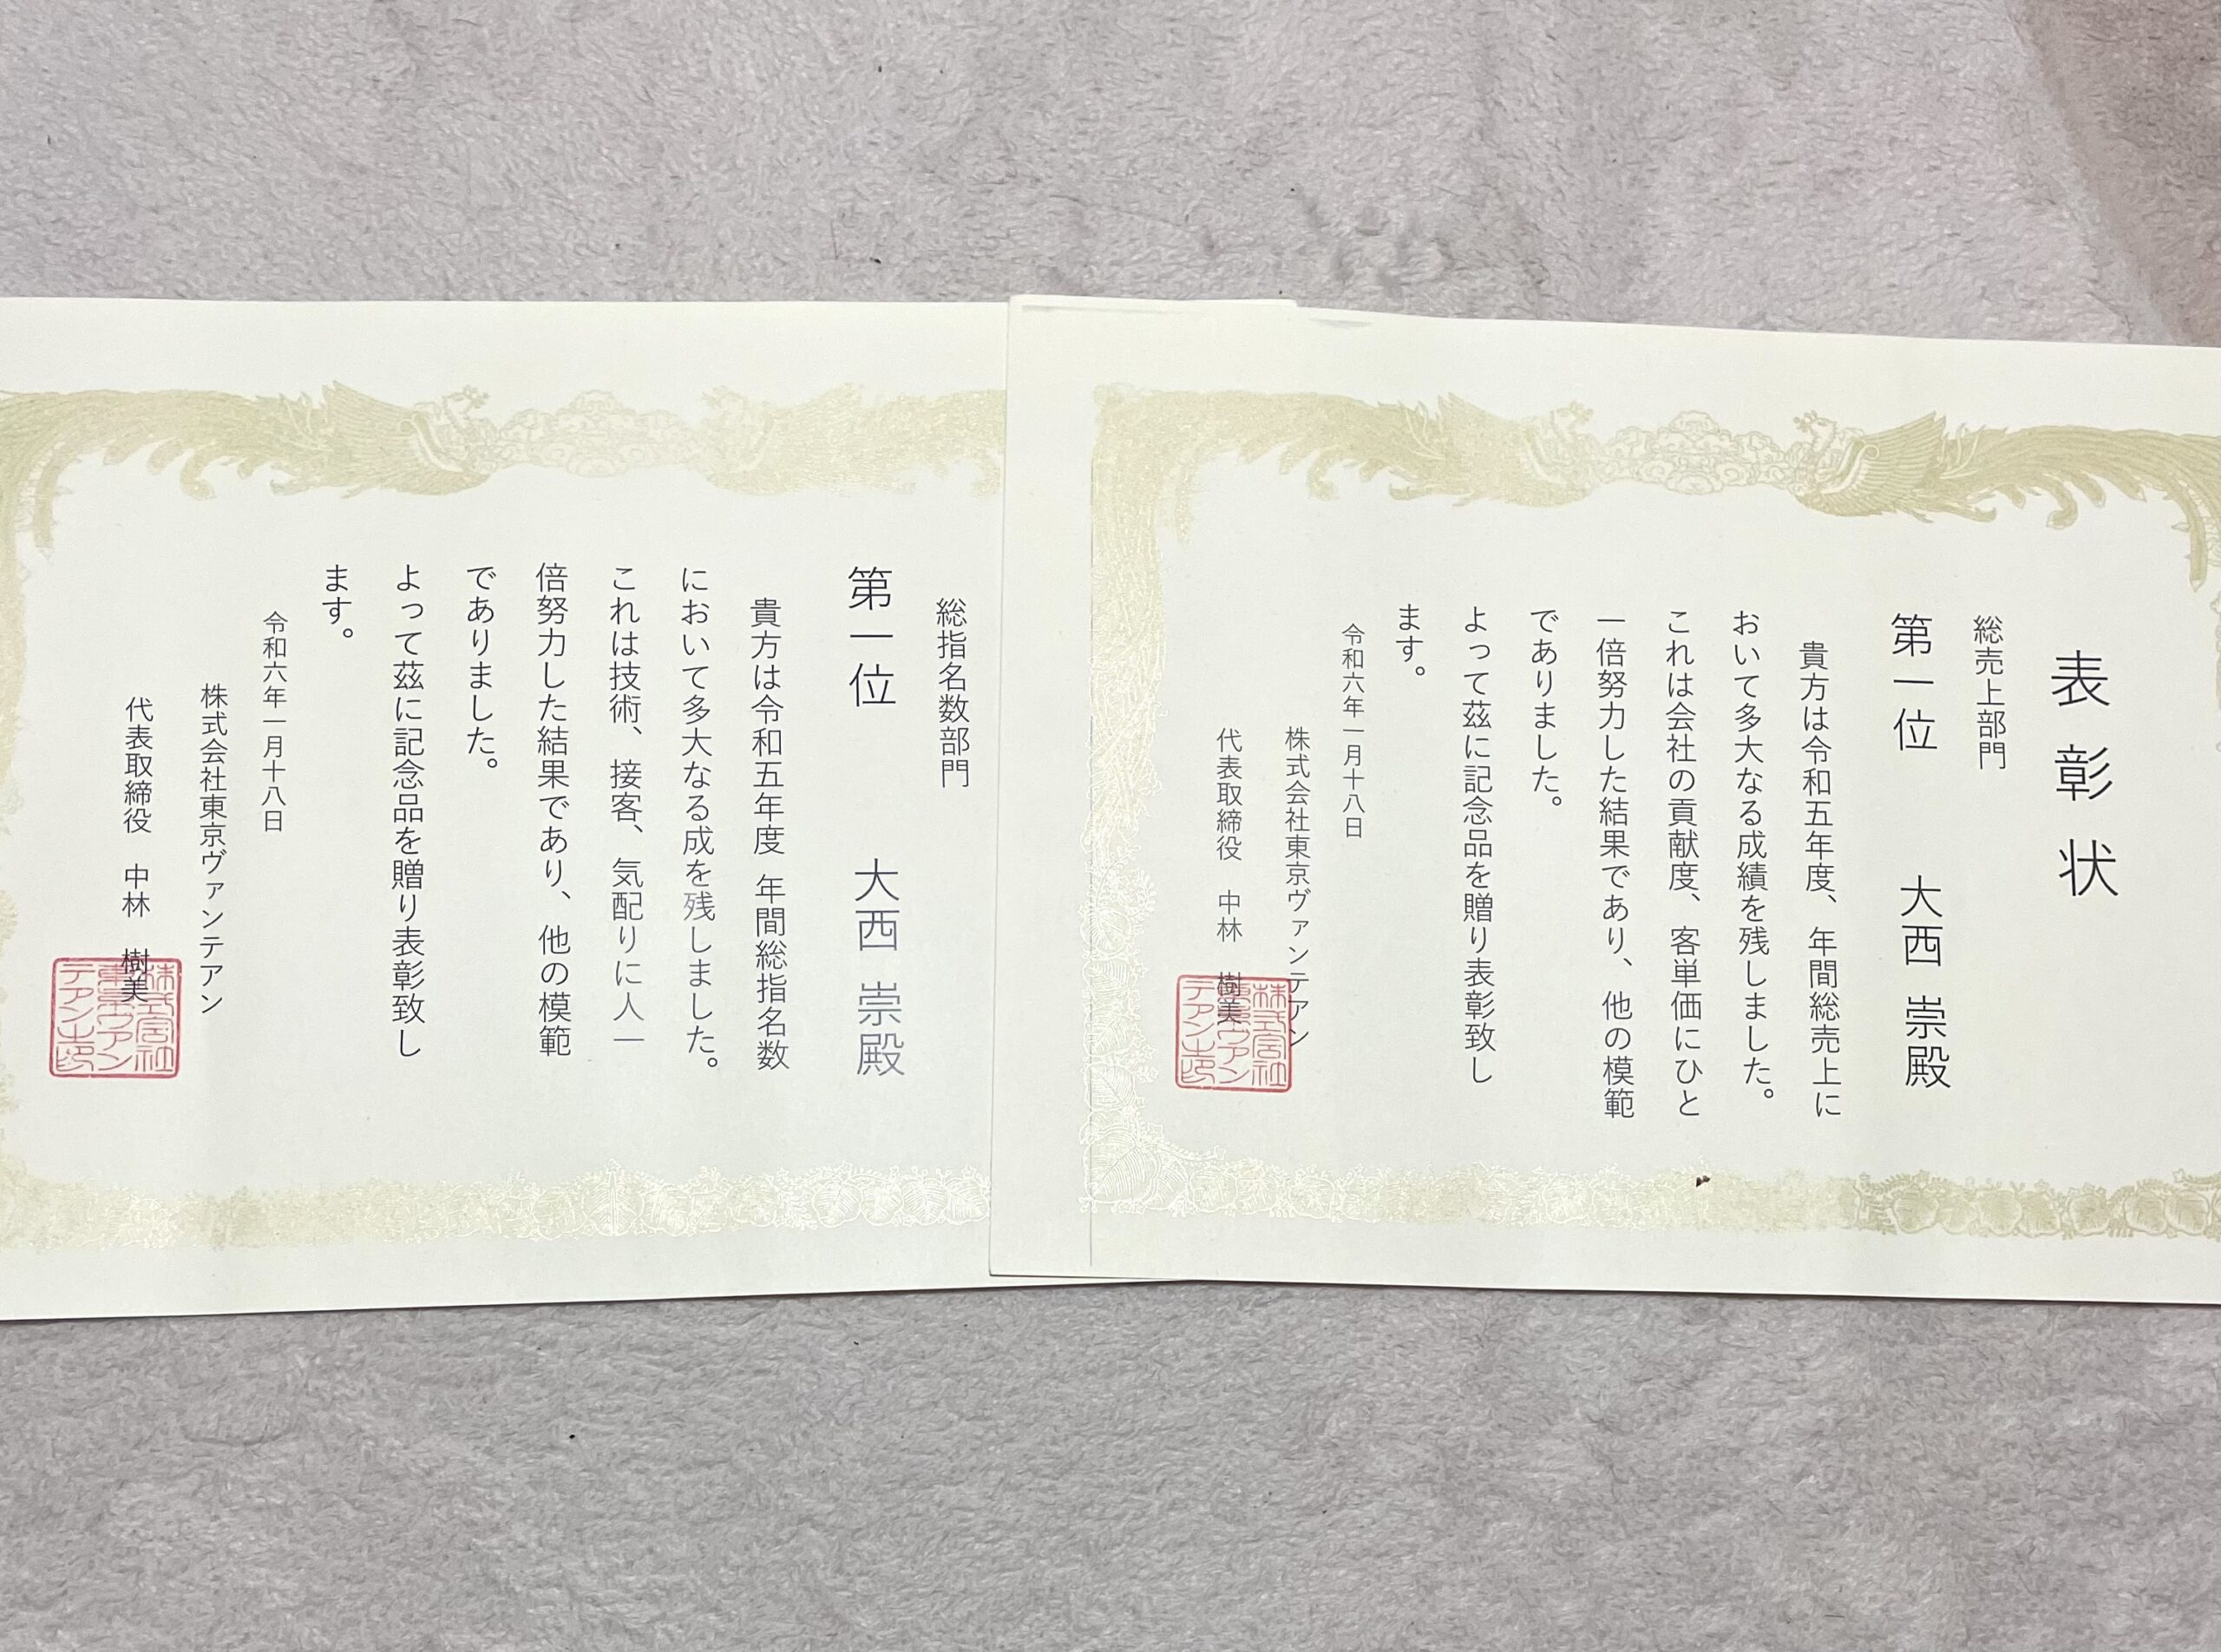 表彰状
総売上部門
第一位 大西 崇殿
貴方は令和五年度、年間総売上に
おいて多大なる成績を残しました。
これは会社の貢献度、客単価にひと
一倍努力した結果であり、他の模範
でありました。
よって茲に記念品を贈り表彰致し
ます。
令和六年一月十八日
株式会社東京ヴァンテアン
代表取締役 中林 樹美
株式会社
東京ヴァン
テアン之印
総指名数部門
第一位 大西 崇殿
貴方は令和五年度 年間総指名数
において多大なる成を残しました。
これは技術、接客、気配りに人一
倍努力した結果であり、他の模範
でありました。
よって茲に記念品を贈り表彰致し
ます。
令和六年一月十八日
株式会社東京ヴァンテアン
代表取締役 中林 樹美
株式会社
東京ヴァン
テアン之印